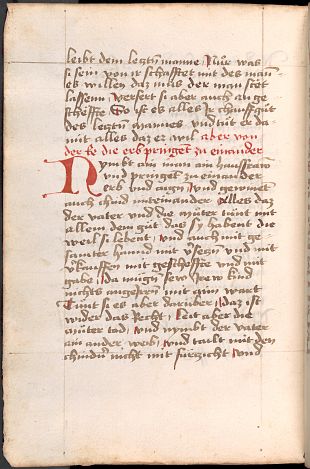 leibt dem leztn manne Nur was
si sein von ir schafftet mit des man¬
es willen daz mus der man stet
lassenn, versert si aber auch an ge
scheffte So ist es alles Ir chauffgut
des leztn mannes vnd tut er da
mit alles daz er wil aber von
der ee die erb pringet zu einander
Nymbt ain man ain hausfrawn
vnd pringet zu einander
erb vnd aign, vnd gewinnet
auch chind miteinander Alles daz
der vater vnd die muter tunt mit
allem dem gut das sy habent die
weil si lebent, vnd auch mit ge
samter hannd mit v̈setzn vnd mit
v̈kauffen mit gescheffte vnd mit
gabe, Da mugn sew Irew kind
nichts angesprn mit ain wart
Tunt si es aber daruber, Daz ist
wider das Recht, leit aber die
muter tod, vnd nymbt der vater
ain ander weib, vnd tailt mit den
chindn nicht mit furzicht, vnd